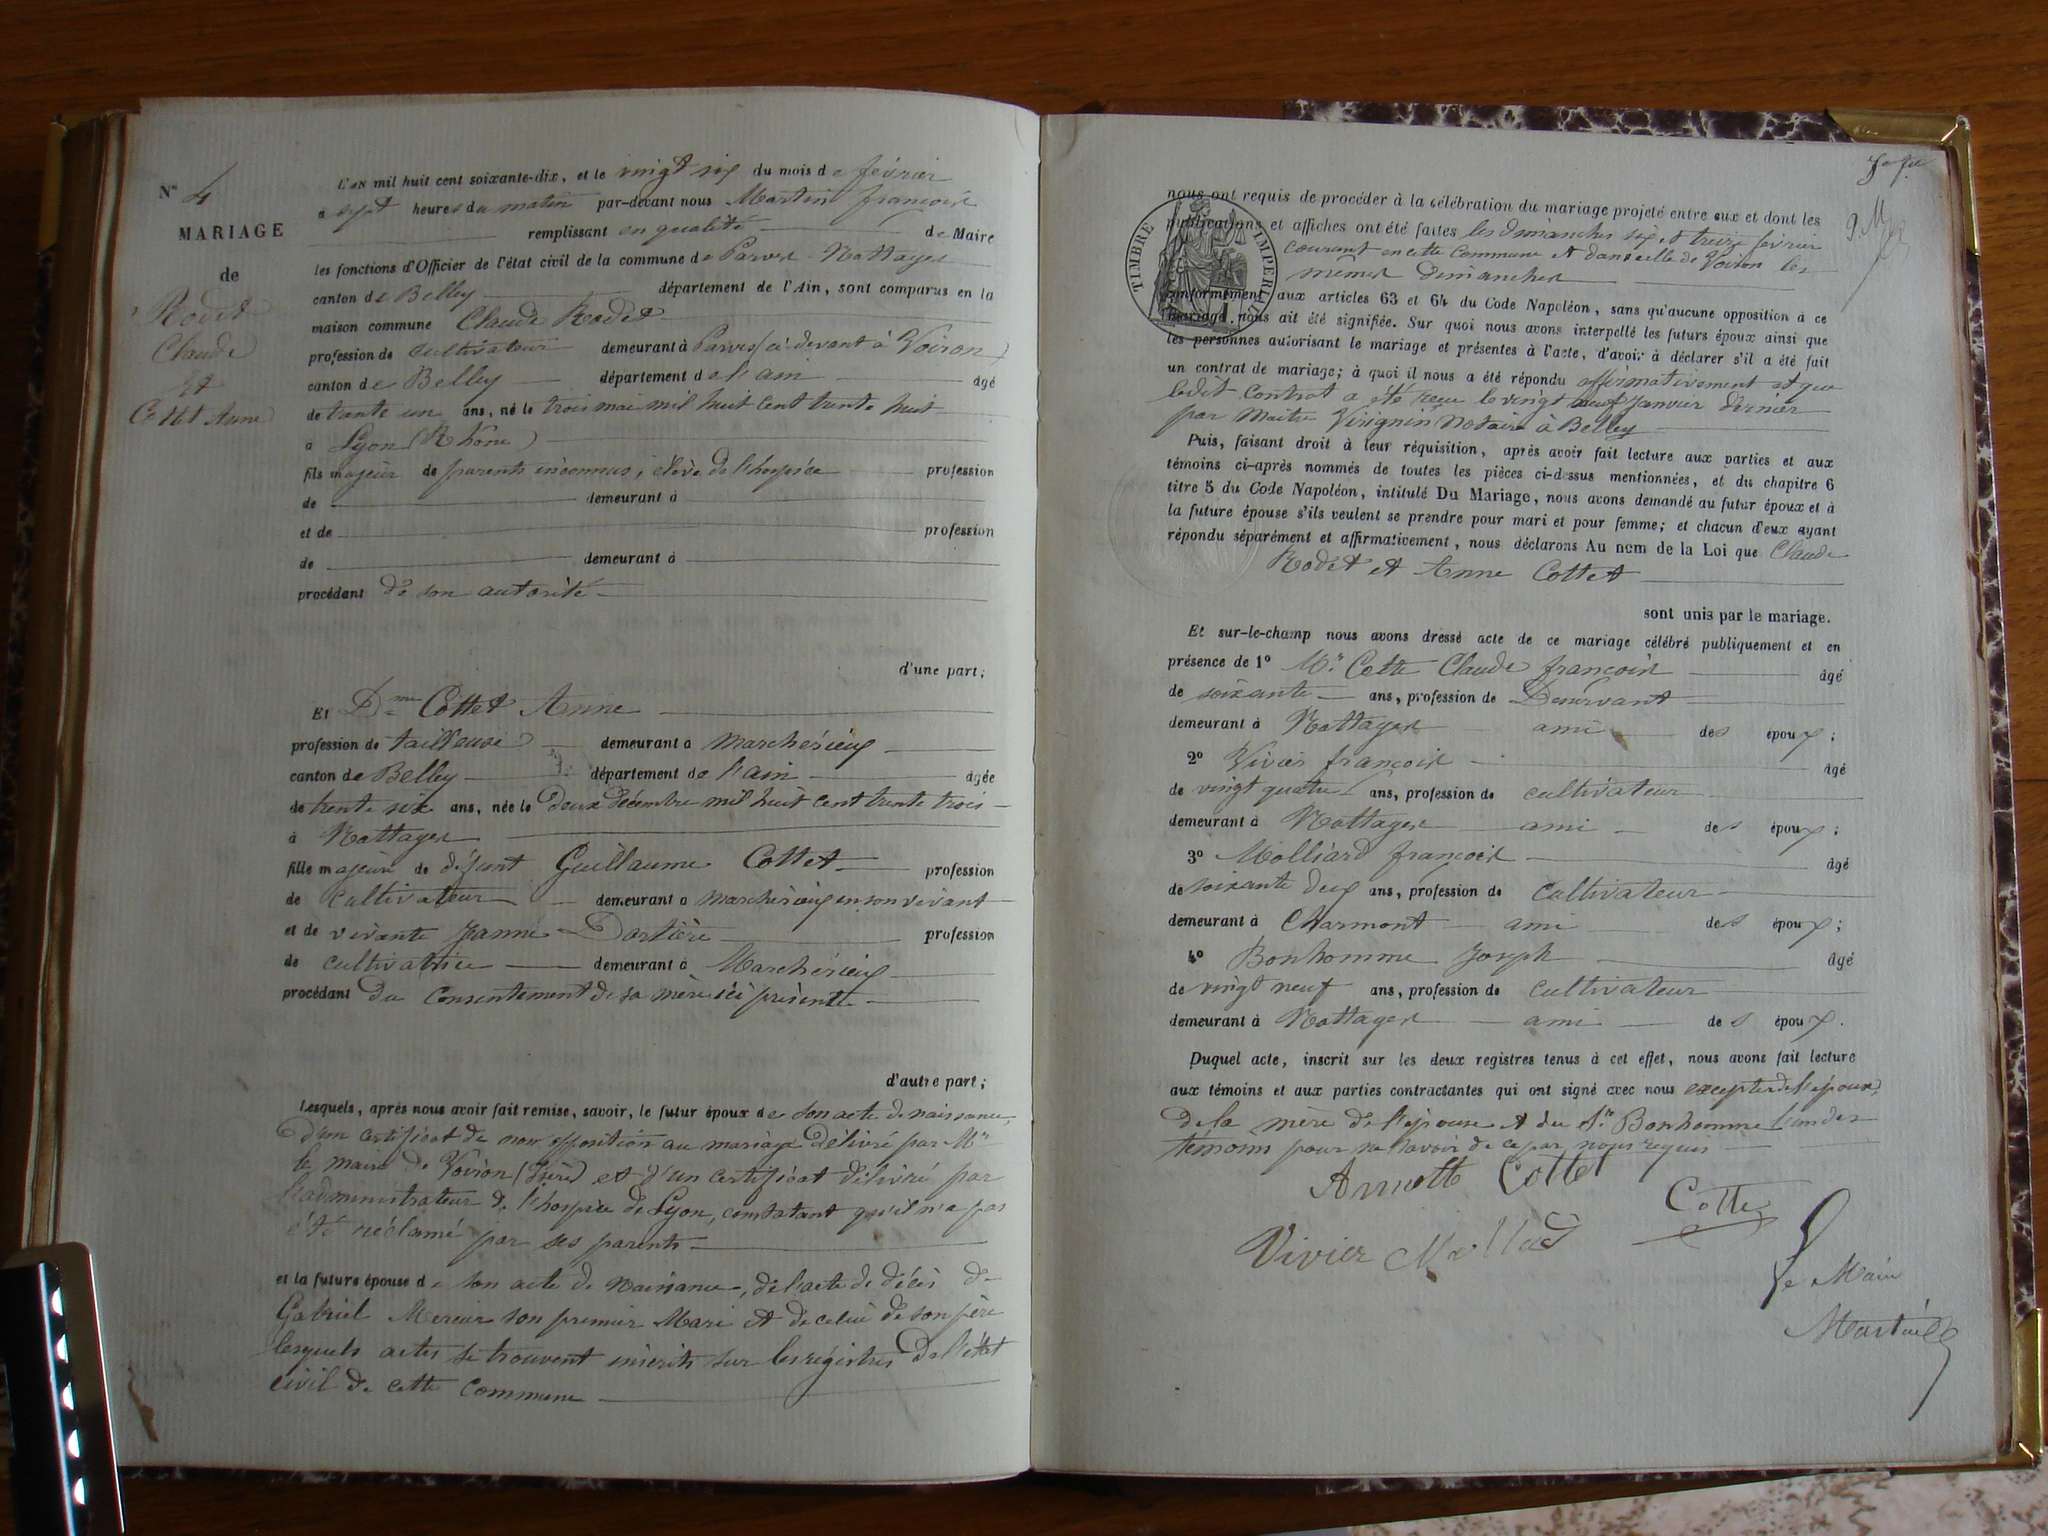 N° 4
MARIAGE
de
Rodet
Claude
et
Cottet Anne
L'an mil huit cent soixante-dix, et le vingt six du mois de février
à sept heures du matin par-devant nous Martin françois
remplissant en qualité de Maire
les fonctions d'Officier de l'état civil de la commune de Parves Nattages
canton de Belley département de l'Ain, sont comparus en la
maison commune Claude Rodet
profession de cultivateur demeurant à Parves (ci-devant à Voiron)
canton de Belley département de l'ain âgé
de trente un ans, né le trois mai mil huit cent trente huit
à Lyon (Rhône)
fils majeur de parents inconnus, élève de l'hospice profession
de demeurant à
et de profession
de demeurant à
procédant de son autorité
d'une part;
Et Dme Cottet Anne
profession de tailleuse demeurant à Marchérieux
canton de Belley département de l'ain âgée
de trente six ans, née le deux décembre mil huit cent trente trois
à Nattages
fille majeure de défunt Guillaume Cottet profession
de cultivateur demeurant à Marchérieux en son vivant
et de vivante Jeanne Dortière profession
de cultivatrice demeurant à Marchérieux
procédant du consentement de sa mère ici présente
d'autre part;
Lesquels, après nous avoir fait remise, savoir, le futur époux de son acte de naissance,
d'un certificat de non opposition au mariage délivré par Mr
le maire de Voiron (Isère) et d'un certificat délivré par
l'administrateur de l'hospice de Lyon, constatant qu'il n'a pas
été réclamé par ses parents
et la future épouse de son acte de naissance, de l'acte de décès de
Gabriel Mercier son premier Mari et de celui de son père
lesquels actes se trouvent inscrits sur les régistres de l'état
civil de cette commune
nous ont requis de procéder à la célébration du mariage projeté entre eux et dont les
publications et affiches ont été faites les dimanches six et treize février
courant en cette Commune et dans celle de Voiron les
mêmes dimanches
TIMBRE IMPERIAL
conformément aux articles 63 et 64 du Code Napoléon, sans qu'aucune opposition à ce
mariage nous ait été signifiée. Sur quoi nous avons interpellé les futurs époux ainsi que
les personnes autorisant le mariage et présentes à l'acte, d'avoir à déclarer s'il a été fait
un contrat de mariage; à quoi il nous a été répondu affirmativement et que
ledit Contrat a été reçu le vingt neuf Janvier dernier
par Maitre Virignin Notaire à Belley
Puis, faisant droit à leur réquisition, après avoir fait lecture aux parties et aux
témoins ci-après nommés de toutes les pièces ci-dessus mentionnées, et du chapitre 6
titre 5 du Code Napoléon, intitulé Du Mariage, nous avons demandé au futur époux et à
la future épouse s'ils veulent se prendre pour mari et pour femme; et chacun d'eux ayant
répondu séparément et affirmativement, nous déclarons Au nom de la Loi que Claude
Rodet et Anne Cottet
sont unis par le mariage.
Et sur-le-champ nous avons dressé acte de ce mariage célébré publiquement et en
présence de 1° Mr. Cotte Claude françois âgé
de soixante ans, profession de Desservant
demeurant à Nattages ami des époux;
2° Vivier françois âgé
de vingt quatre ans, profession de cultivateur
demeurant à Nattages ami des époux;
3° Molliard françois âgé
de soixante deux ans, profession de cultivateur
demeurant à Charmont ami des époux;
4° Bonhomme Joseph âgé
de vingt neuf ans, profession de cultivateur
demeurant à Nattages ami des époux.
Duquel acte, inscrit sur les deux registres tenus à cet effet, nous avons fait lecture
aux témoins et aux parties contractantes qui ont signé avec nous excepté de l'époux,
de la mère de l'épouse et du Sr. Bonhomme l'un des
témoins pour ne savoir de ce par nous requis
Annette Cottet
Cotte
Vivier
Le Maire
Martin